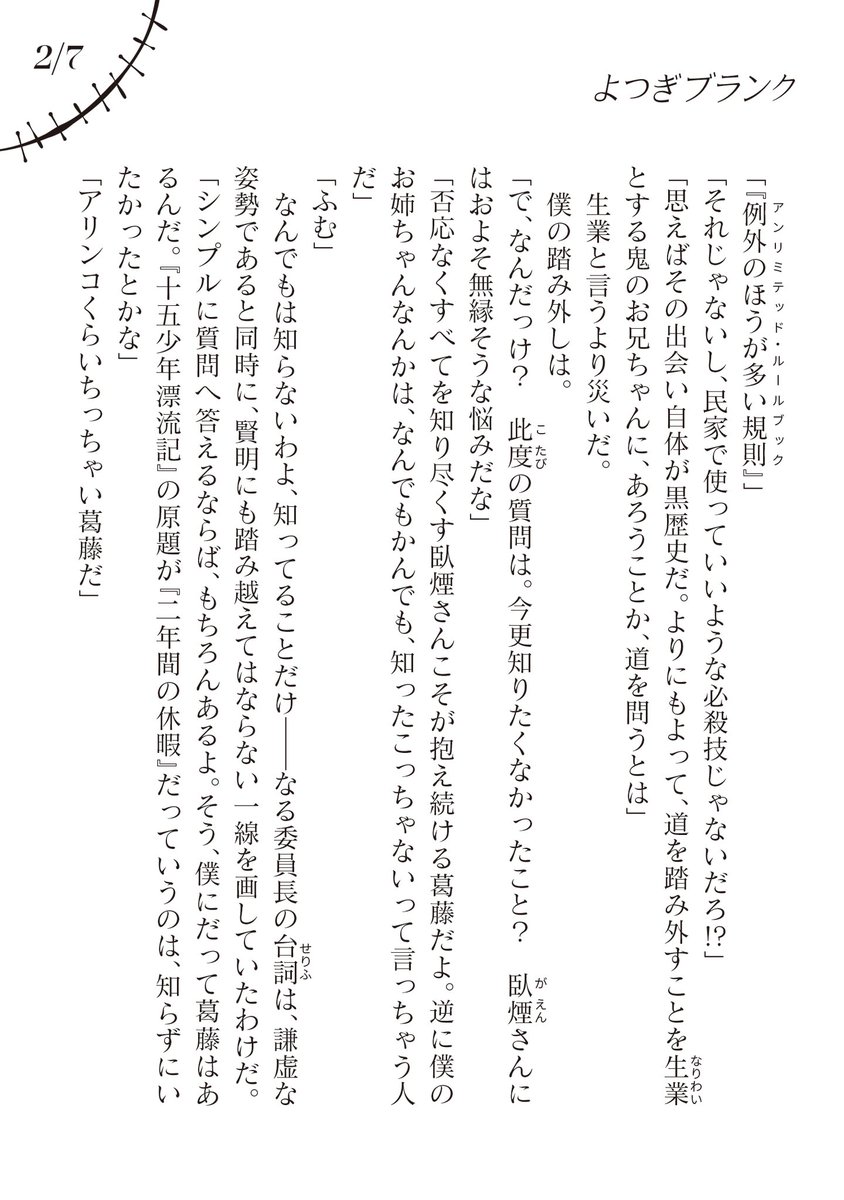 2/7
よつぎブランク
「『例外のほうが多い規則』」
アンリミテッド・ルールブック
「それじゃないし、民家で使っていいような必殺技じゃないだろ!?」
「思えばその出会い自体が黒歴史だ。よりにもよって、道を踏み外すことを生業
なりわい
とする鬼のお兄ちゃんに、あろうことか、道を問うとは」
生業と言うより災いだ。
僕の踏み外しは。
「で、なんだっけ? 此度の質問は。今更知りたくなかったこと? 臥煙さんに
こたび
がえん
はおよそ無縁そうな悩みだな」
「否応なくすべてを知り尽くす臥煙さんこそが抱え続ける葛藤だよ。逆に僕の
お姉ちゃんなんかは、なんでもかんでも、知ったこっちゃないって言っちゃう人
だ」
「ふむ」
なんでもは知らないわよ、知ってることだけ――なる委員長の台詞は、謙虚な
せりふ
姿勢であると同時に、賢明にも踏み越えてはならない一線を画していたわけだ。
「シンプルに質問へ答えるならば、もちろんあるよ。そう、僕にだって葛藤はあ
るんだ。『十五少年漂流記』の原題が『二年間の休暇』だっていうのは、知らずにい
たかったとかな」
「アリンコくらいちっちゃい葛藤だ」